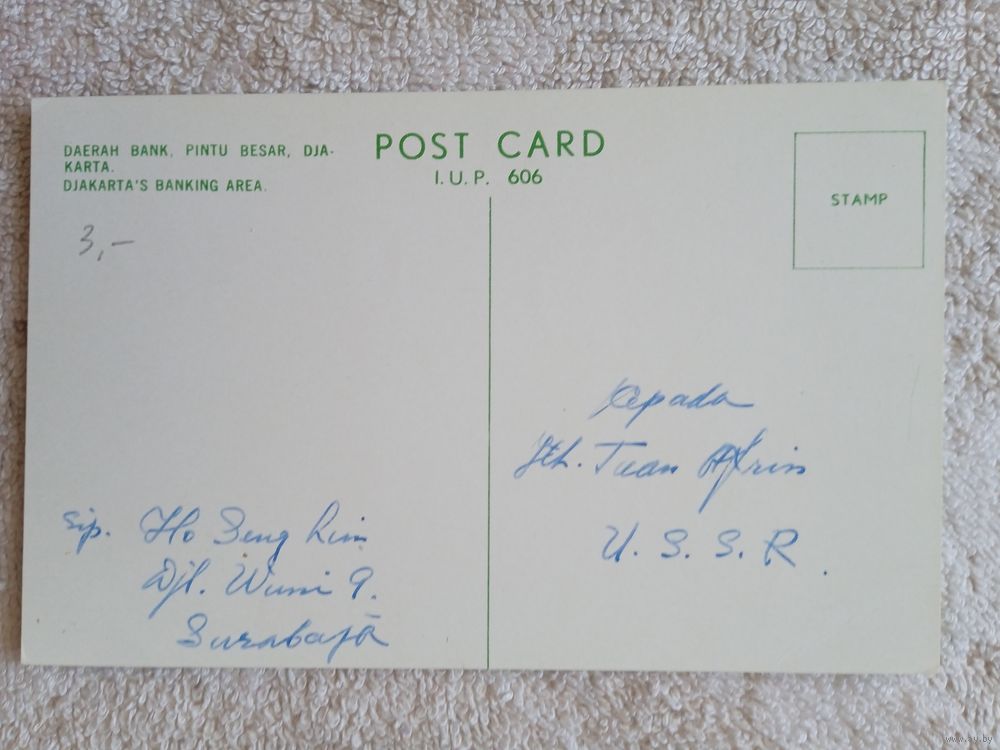 DAERAH BANK, PINTU BESAR, DJA-
KARTA.
DJAKARTA'S BANKING AREA.
3,-
POST CARD
I.U.P. 606
STAMP
Kepada
Jth. Tuan
U. S. S. R.
Sip. Ho Seng Lim
Djl. Wuni 9.
Surabaja
www.ay.by